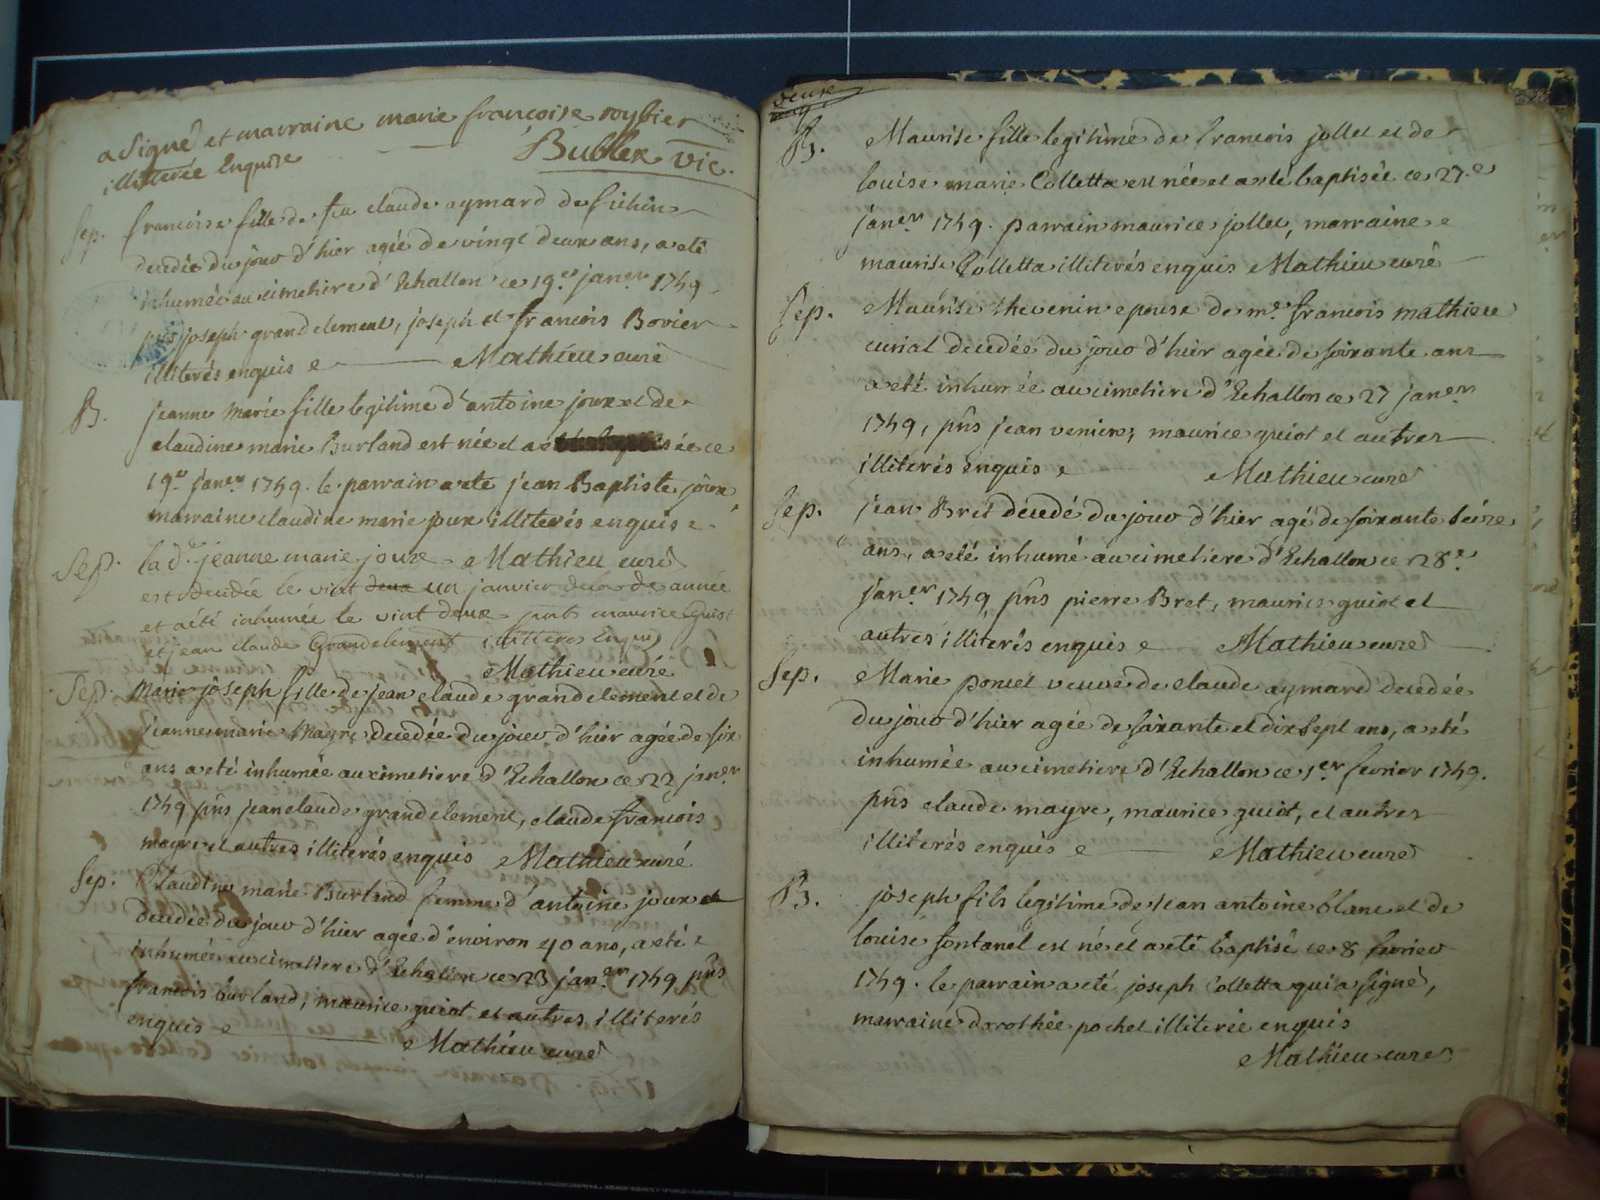 a signé et marraine marie francoise roybier
illitérée Enquise
Bublex vic.
Sep. francoise fille de feu claude aymard de
decedée du jour d'hier agée de vingt deux ans, a eté
inhumée au cimetiere d'Echallon ce 19.e jan.er 1749
pñs joseph grandclement, joseph et francois Bovier
illiterés enquis Mathieu curé
B. jeanne Marie fille legitime d'antoine joux et de
claudine marie Burland est née et a été baptisée ce
19.e jan.er 1749. le parrain a eté jean Baptiste joux
marraine claudine marie joux illiterés enquis
Sep. la d. jeanne marie joux Mathieu curé
est decedée le vint deux un janvier de année
et a été inhumée le vint deux pnts maurice Guiot
et jean claude Grandclement illitéres Enquis
Mathieu curé
Sep. Marie joseph fille de jean claude grandclement et de
jeanne marie Mayre decedée du jour d'hier agée de six
ans a eté inhumée au cimetiere d'Echallon ce 22 jan.er
1749 pñs jean claude grandclement, claude francois
mayre et autres illiterés enquis Mathieu curé
Sep. Claudine marie Burland femme d'antoine joux
decedée du jour d'hier agée d'environ 40 ans, a eté
inhumée au cimetiere d'Echallon ce 23 jan.er 1749 pñs
francois burland, maurice guiot et autres illiterés
enquis Mathieu curé
deuxe
B. Maurise fille legitime de francois jollet et de
louise marie Colletta est née et a eté baptisée ce 27.e
jan.er 1749. parrain maurice jollet, marraine
maurise Colletta illiterés enquis Mathieu curé
Sep. Maurise thevenin epouse de m.e francois mathieu
curial decedée du jour d'hier agée de soixante ans
a eté inhumée au cimetiere d'Echallon ce 27 jan.er
1749, pñs jean venier, maurice guiot et autres
illiterés enquis Mathieu curé
Sep. jean Bret decedé du jour d'hier agé de soixante seize
ans, a eté inhumé au cimetiere d'Echallon ce 28.e
jan.er 1749 pñs pierre Bret, maurice guiot et
autres illiterés enquis Mathieu curé
Sep. Marie poncet veuve de claude aymard decedée
du jour d'hier agée de soixante et dix sept ans, a eté
inhumée au cimetiere d'Echallon ce 1.er fevrier 1749.
pñs claude mayre, maurice guiot, et autres
illiterés enquis Mathieu curé
B. joseph fils legitime de jean antoine blanc et de
louise fontanel est né et a eté baptisé ce 8 fevrier
1749. le parrain a eté joseph Colletta qui a signé,
marraine dorothée pochet illiterée enquis
Mathieu curé